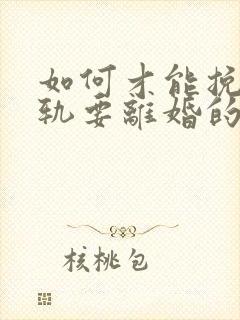 如何才能挽
轨要离婚的
核桃包